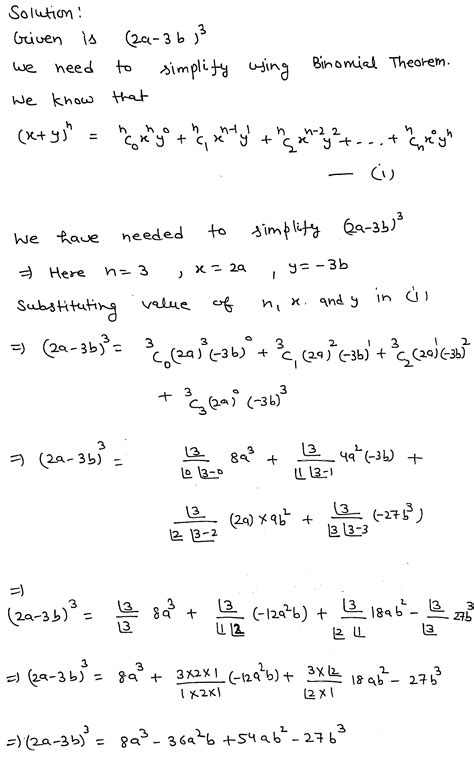 Solution:
Given is (2a-3b)³
We need to simplify using Binomial Theorem.
We know that
(x+y)ⁿ = ⁿC₀xⁿy⁰ + ⁿC₁xⁿ⁻¹y¹ + ⁿC₂xⁿ⁻²y² + ... + ⁿCₙx⁰yⁿ
— (i)
We have needed to simplify (2a-3b)³
⇒ Here n=3 , x=2a , y=-3b
Substituting value of n, x. and y in (i)
⇒ (2a-3b)³ = ³C₀(2a)³(-3b)⁰ + ³C₁(2a)²(-3b)¹ + ³C₂(2a)¹(-3b)²
+ ³C₃(2a)⁰(-3b)³
⇒ (2a-3b)³ = |3/(|0 |3-0) 8a³ + |3/(|1 |3-1) 4a²(-3b) +
|3/(|2 |3-2) (2a)×9b² + |3/(|3 |3-3) (-27b³)
⇒
(2a-3b)³ = |3/|3 8a³ + |3/(|1 |2) (-12a²b) + |3/(|2 |1) 18ab² - |3/|3 27b³
⇒ (2a-3b)³ = 8a³ + (3×2×1)/(1×2×1) (-12a²b) + (3×|2)/(|2×1) 18ab² - 27b³
⇒ (2a-3b)³ = 8a³ - 36a²b + 54ab² - 27b³